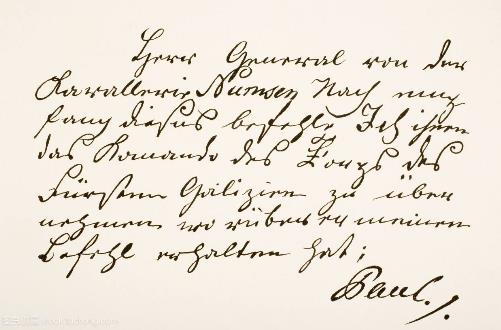 Herr General von der
Kavallerie Numsen Nach emp
fang dieses befehle Ich ihnen
das Komando des Korps des
Fürsten Galizien zu über
nehmen wo rüber er meinen
Befehl erhalten hat;
Paul.